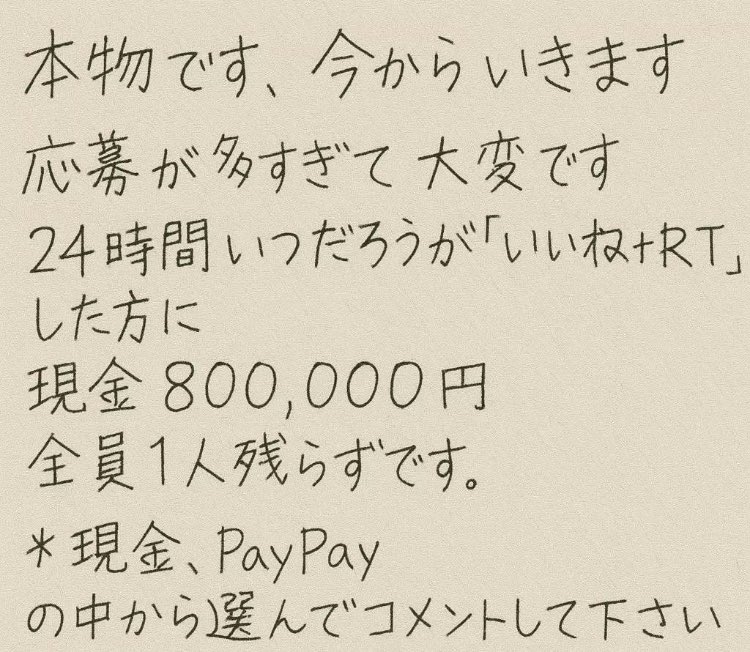 本物です、今からいきます
応募が多すぎて大変です
24時間いつだろうが「いいね+RT」
した方に
現金800,000円
全員1人残らずです。
*現金、PayPay
の中から選んでコメントして下さい